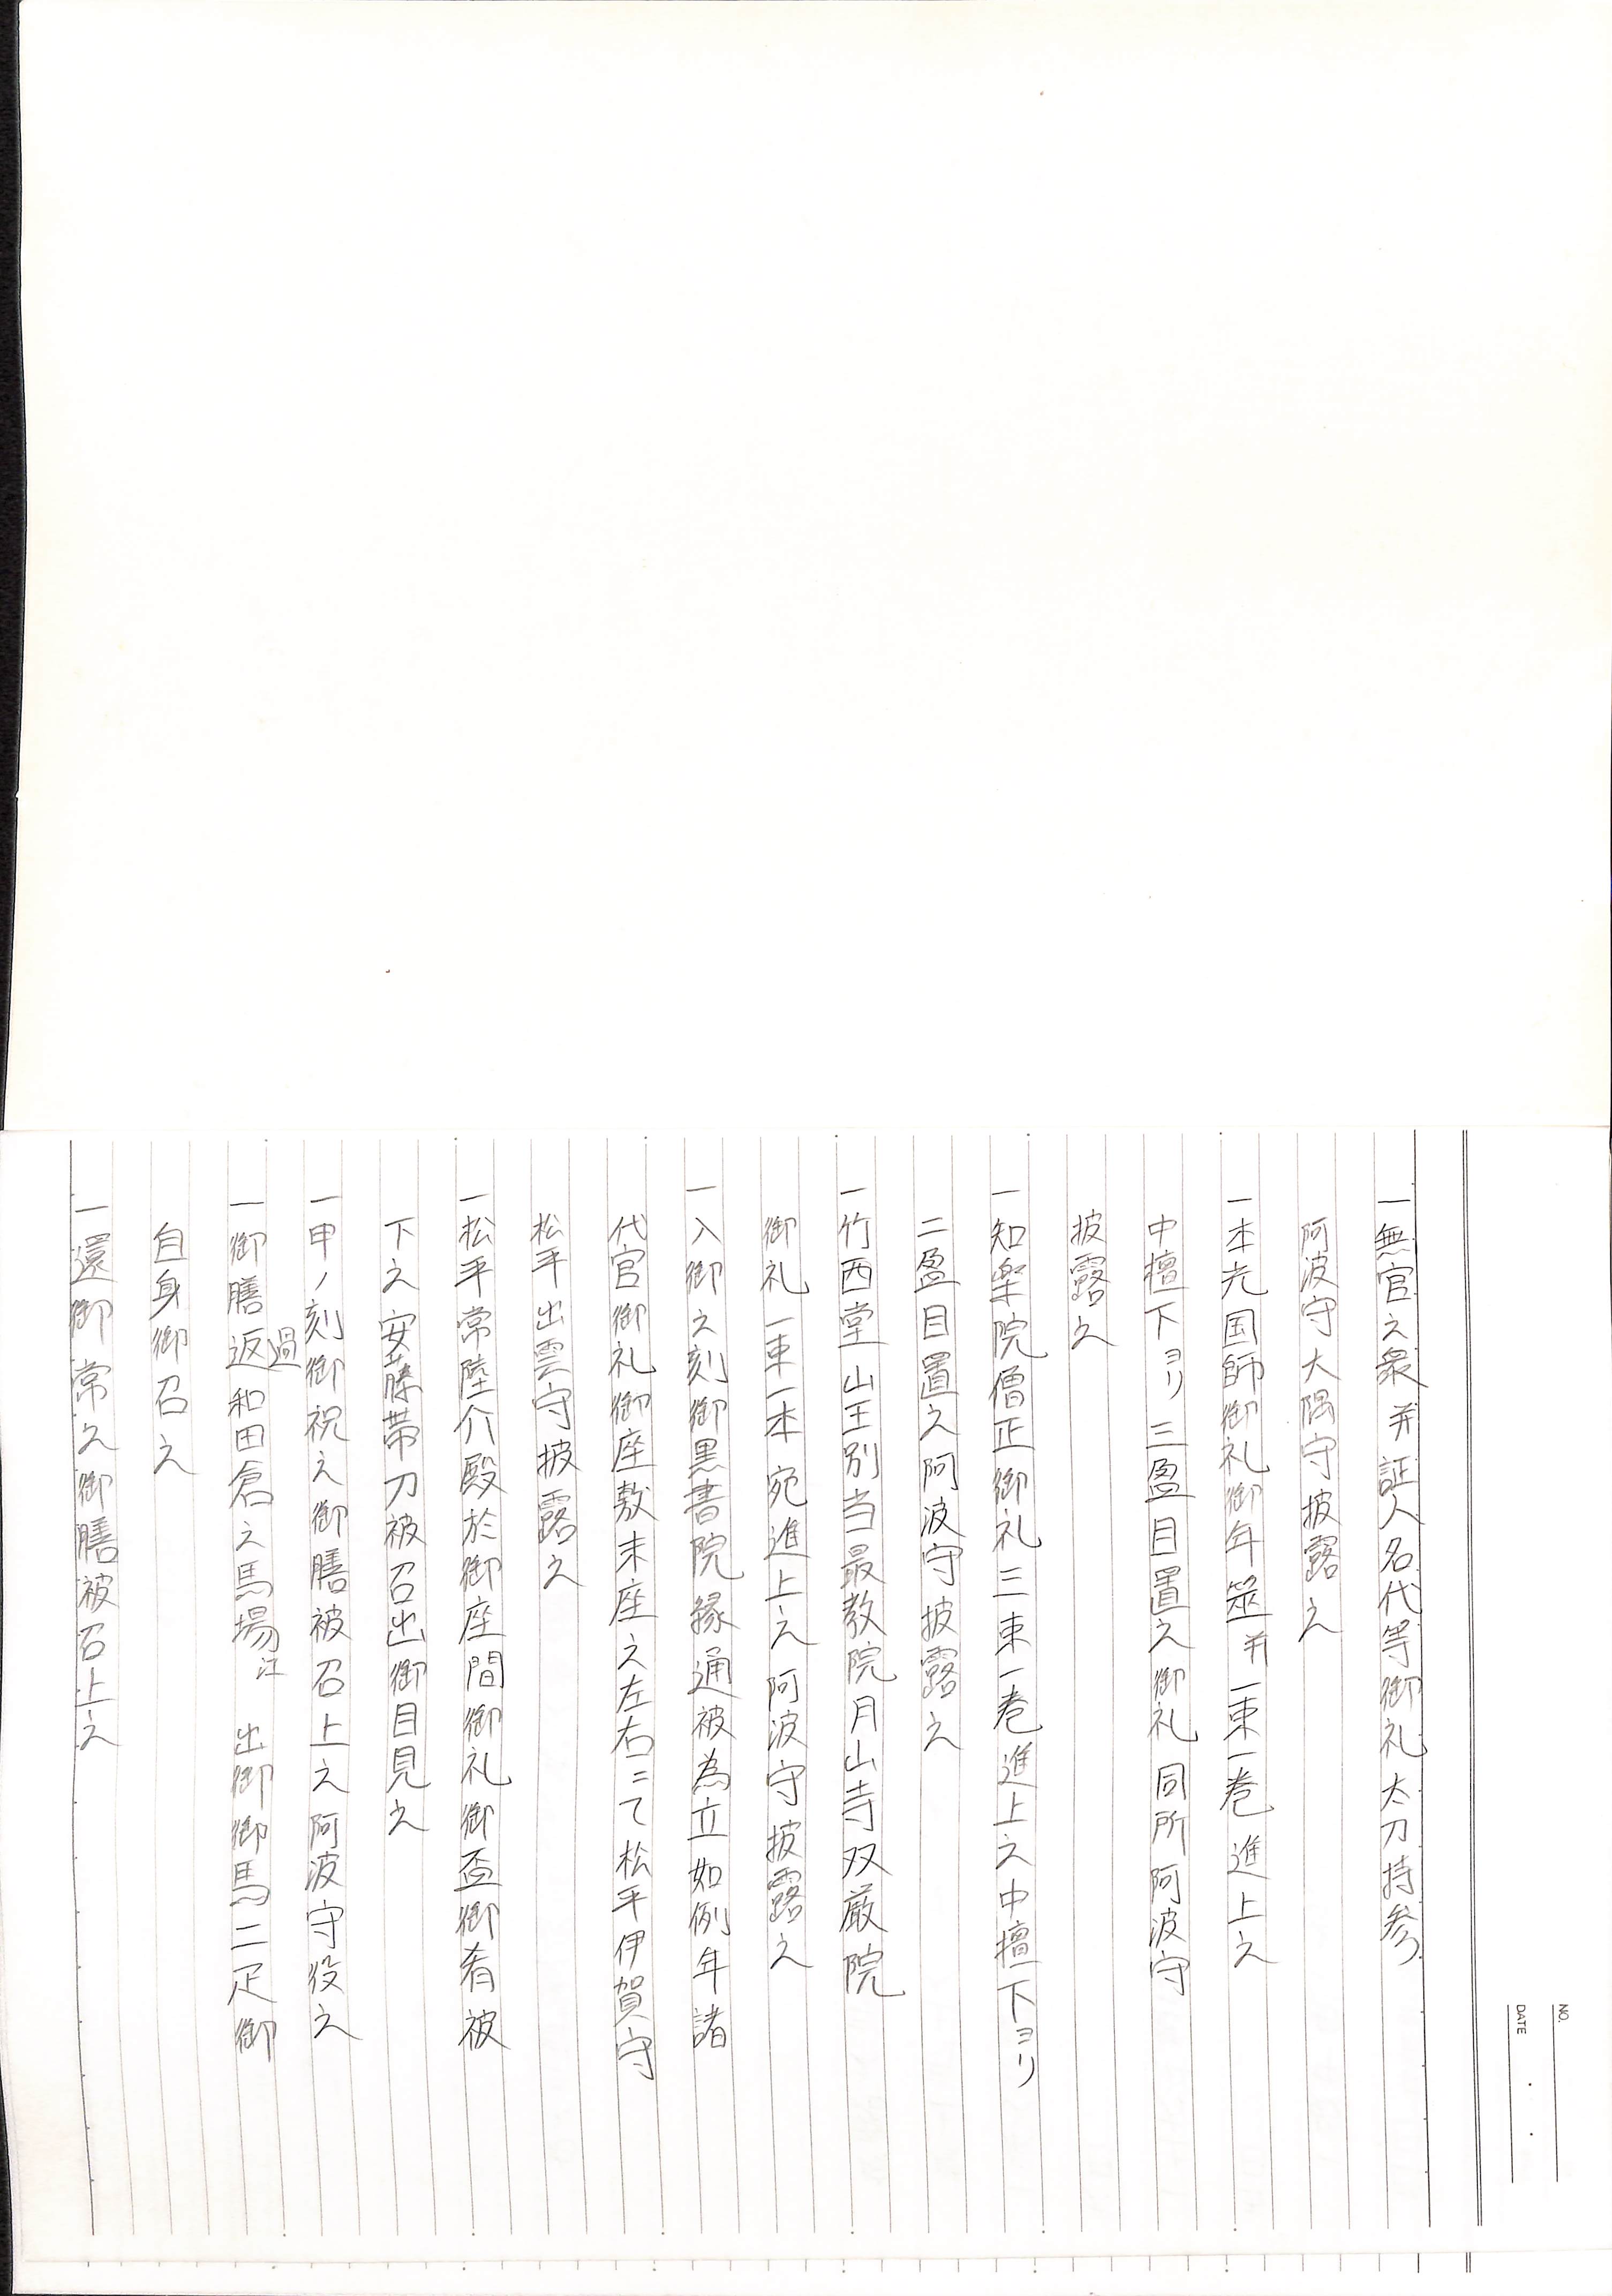 一無官之衆并証人名代等御礼太刀持参
阿波守大隅守披露之
一本光国師御礼御年筮并一束一巻進上之
中檀下ヨリ三畳目置之御礼同所阿波守
披露之
一知楽院僧正御礼三束一巻進上之中檀下ヨリ
二畳目置之阿波守披露之
一竹西堂山王別当最教院月山寺双厳院
御礼一束一本宛進上之阿波守披露之
一入御之刻御黒書院縁通被為立如例年諸
代官御礼御座敷末座之左右ニて松平伊賀守
松平出雲守披露之
一松平常陸介殿於御座間御礼御盃御肴被
下之安藤帯刀被召出御目見之
一申ノ刻御祝之御膳被召上之阿波守役之
一御膳返過和田倉之馬場江 出御御馬二疋御
自身御召之
一還御常之御膳被召上之
NO.
DATE . .